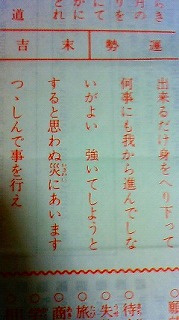 らき
月の
りを
にて
道
運勢
末吉
出来るだけ身をへり下って
何事にも我から進んでしな
いがよい 強いてしようと
すると思わぬ災にあいます
つゝしんで事を行え
○願
○待
○失
○旅
○商